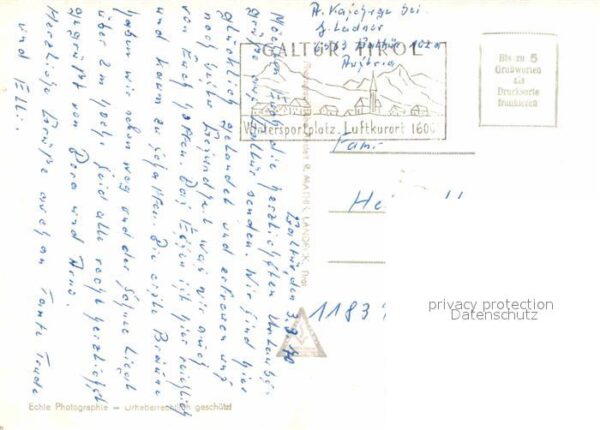 A. Kajchege bei
J. Ladner
Austria
GALTÜR TIROL
Wintersportplatz. Luftkurort 1600
Bis zu 5
Grußworten
als
Drucksorte
frankieren
Galtür, den 3.3.70
Möchten Euch die herzlichsten Urlaubs-
grüße aus Galtür senden. Wir sind hier
glücklich gelandet und erfreuen uns
noch guter Gesundheit, was wir auch
von Euch hoffen. Das Essen ist hier reichlich
und kaum zu schaffen. Die erste Bräune
haben wir schon weg und der Schnee liegt
über 2 m hoch. Seid alle recht herzlichst
gegrüßt von Dora und Arno.
Herzliche Grüße auch an Tante Trude
und Elli.
Fam.
He
1183
privacy protection
Datenschutz
Echte Photographie — Urheberrechtlich geschützt